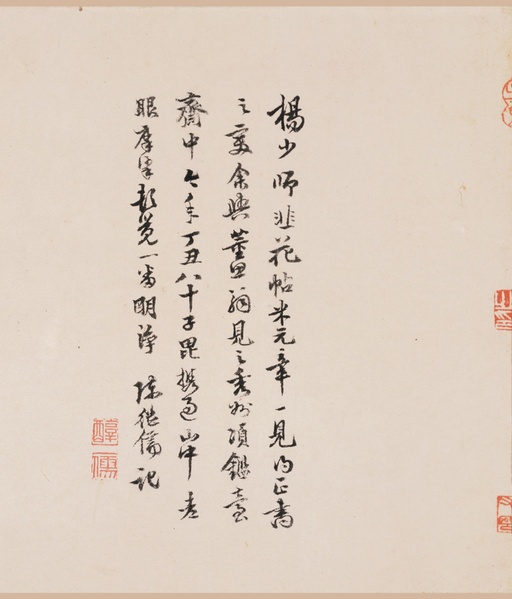 楊少師韭花帖米元章一見正書
之變余與董思翁見之秀州項鑑臺
齋中今年丁丑八十子毘攜過山中老
眼摩挲覺一番明淨 陳繼儒記
醇儒